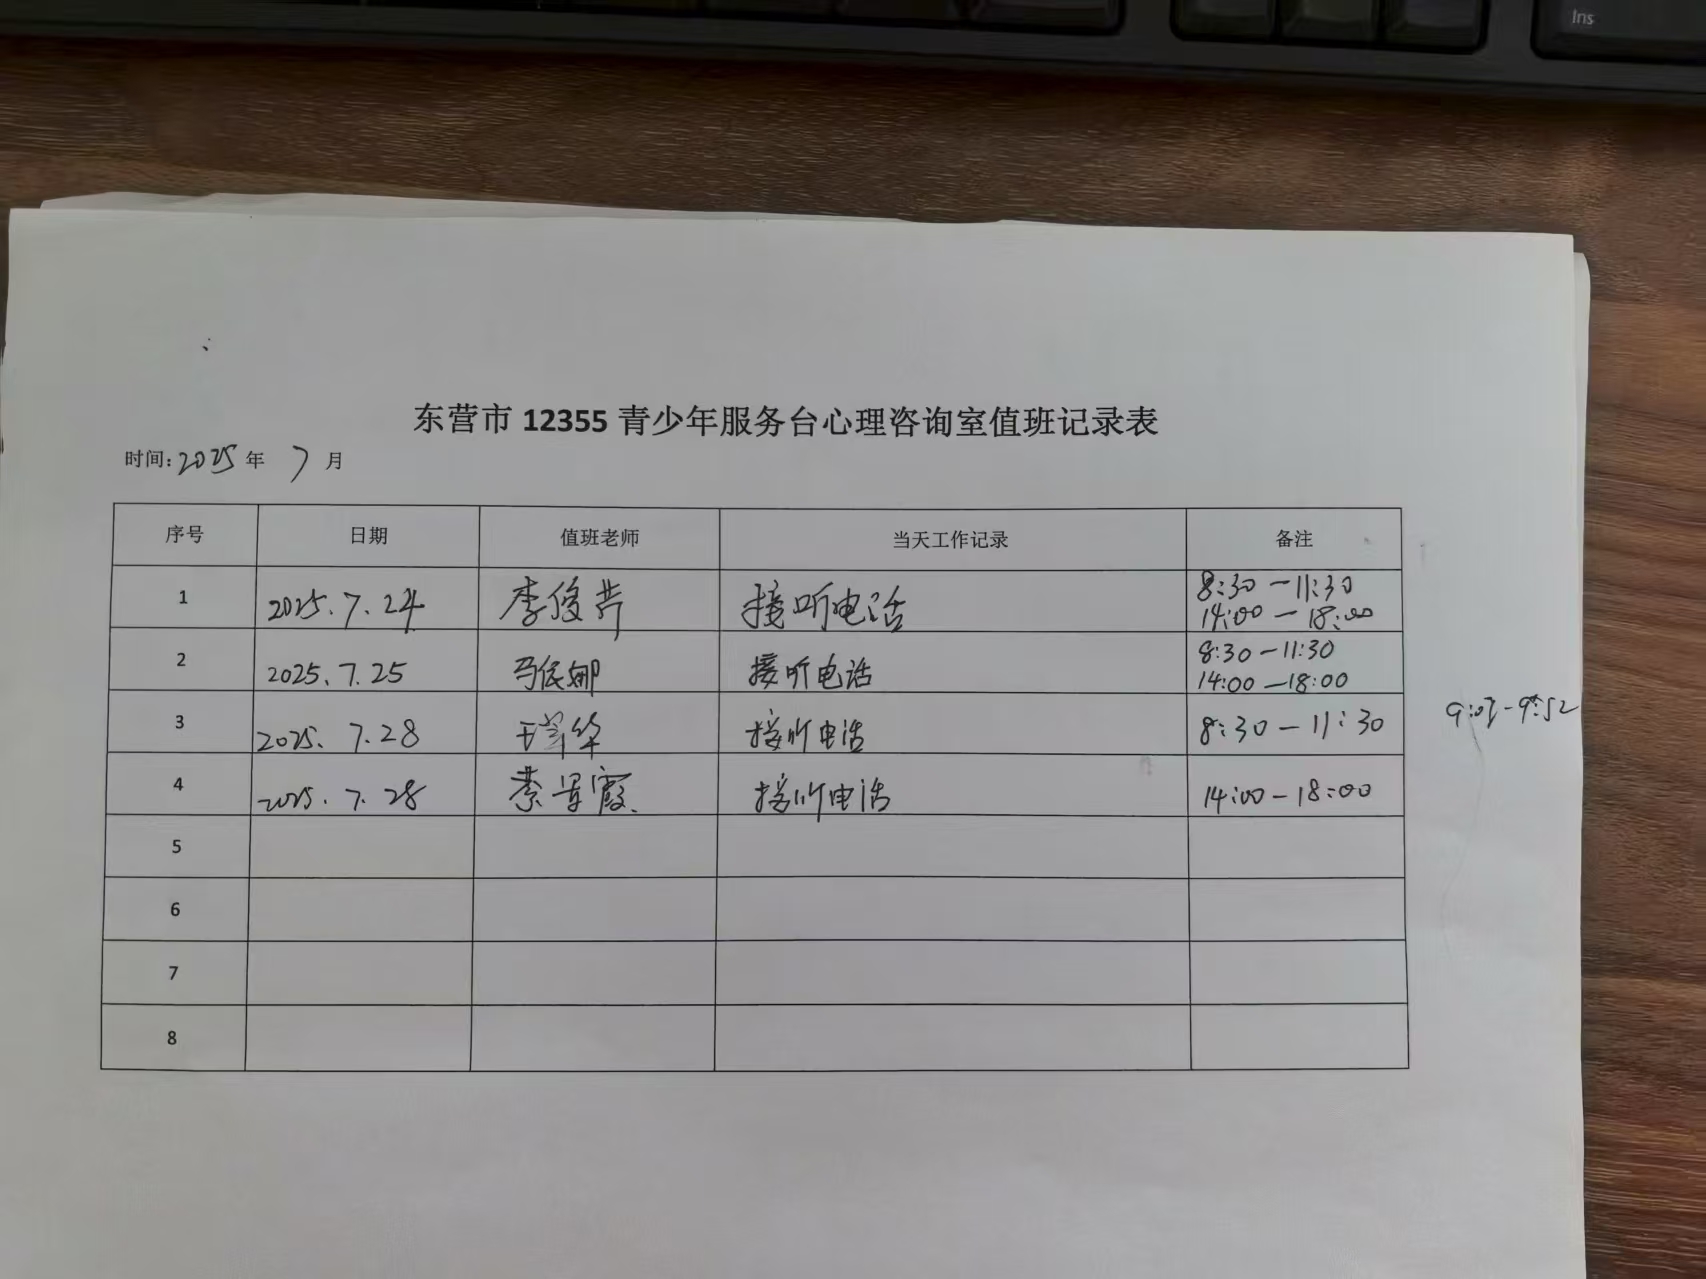 Ins
东营市 12355 青少年服务台心理咨询室值班记录表
时间: 2025 年 7 月
序号 日期 值班老师 当天工作记录 备注
1 2025.7.24 李俊芹 接听电话 8:30-11:30
14:00-18:00
2 2025.7.25 马俊娜 接听电话 8:30-11:30
14:00-18:00
3 2025.7.28 接听电话 8:30-11:30
4 2025.7.28 接听电话 14:00-18:00
5
6
7
8